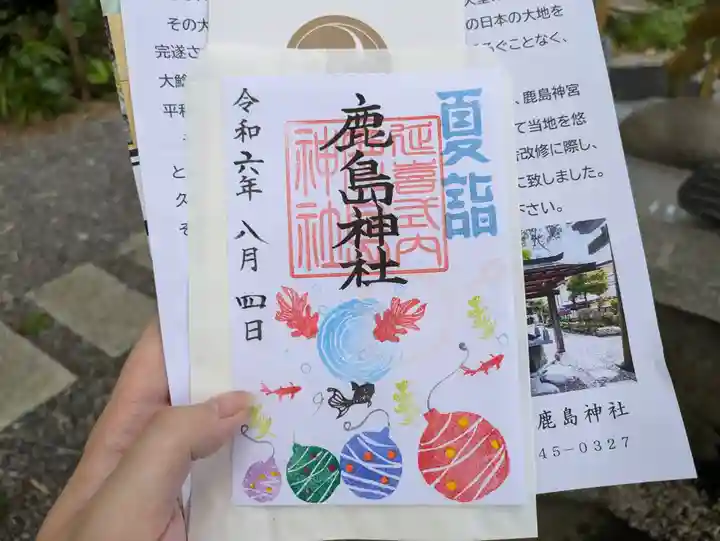 夏詣
鹿島神社
延喜式内
鹿島
神社
令和六年 八月 四日
その大
完遂さ
大鯰
平和
と
久
そ
の日本の大地を
ぐことなく、
、鹿島神宮
て当地を悠
改修に際し、
に致しました。
さい。
鹿島神社
45-0327